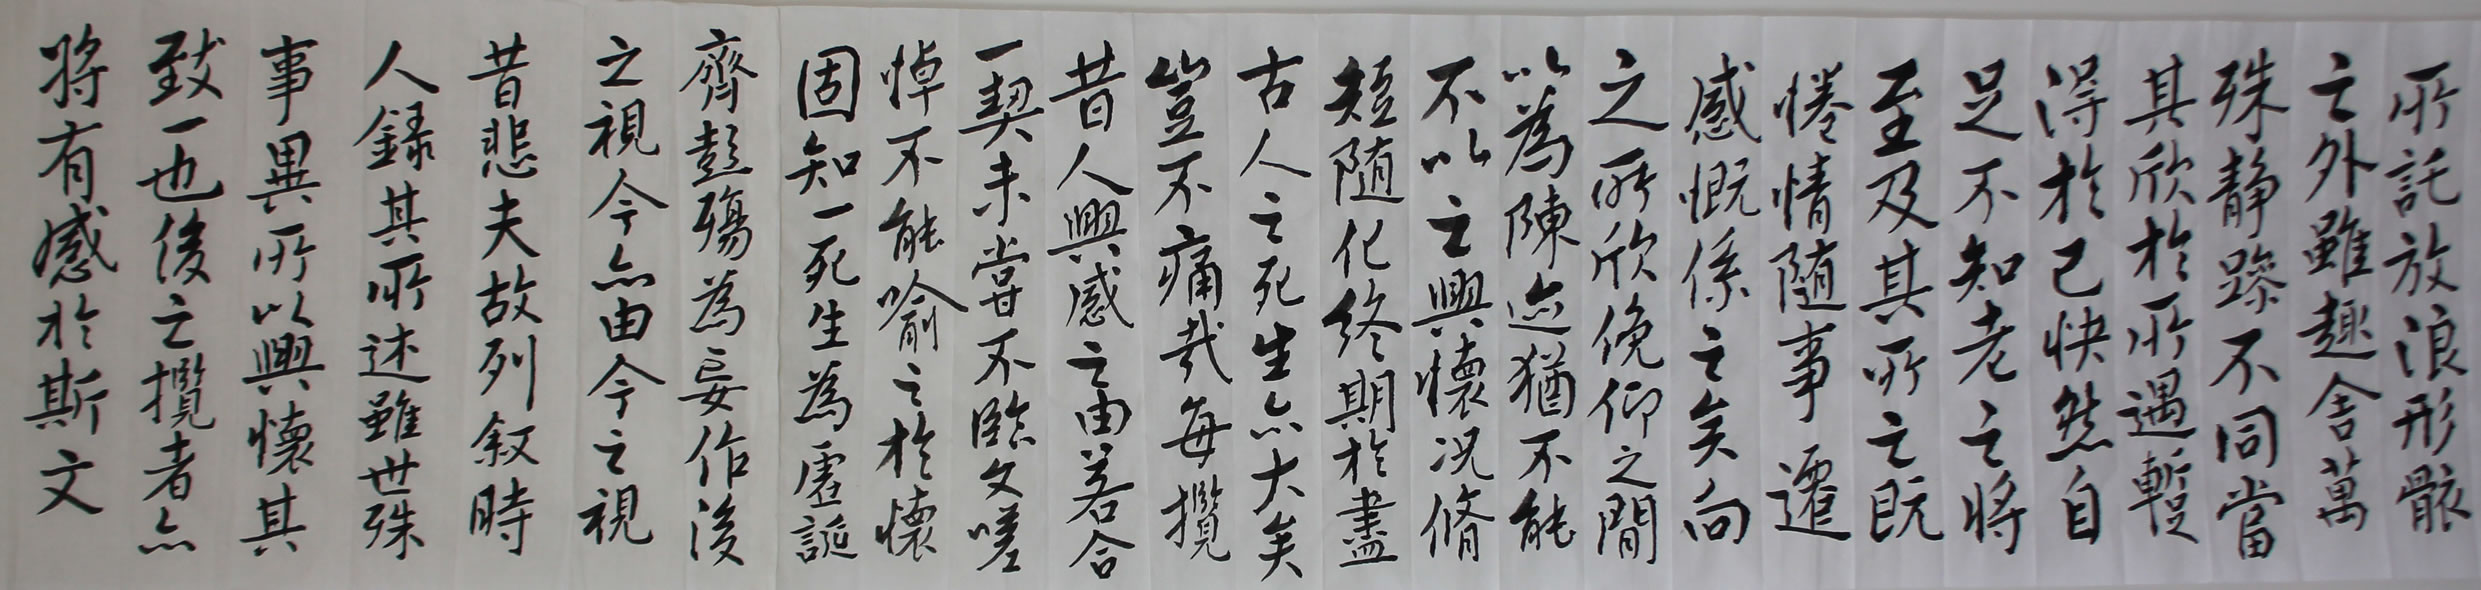 所託放浪形骸
之外雖趣舍萬
殊静躁不同當
其欣於所遇暫
得於己快然自
足不知老之將
至及其所之既
惓情随事遷
感慨係之矣向
之所欣俛仰之間
以為陳迹猶不能
不以之興懷況脩
短随化終期於盡
古人之死生亦大矣
豈不痛哉每攬
昔人興感之由若合
一契未嘗不臨文嗟
悼不能喻之於懷
固知一死生為虛誕
齊彭殤為妄作後
之視今亦由今之視
昔悲夫故列叙時
人録其所述雖世殊
事異所以興懷其
致一也後之攬者亦
将有感於斯文